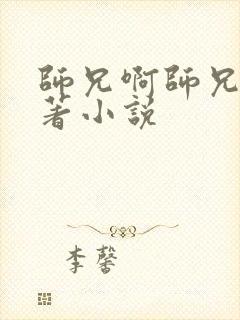 師兄啊師兄
著小説
李馨